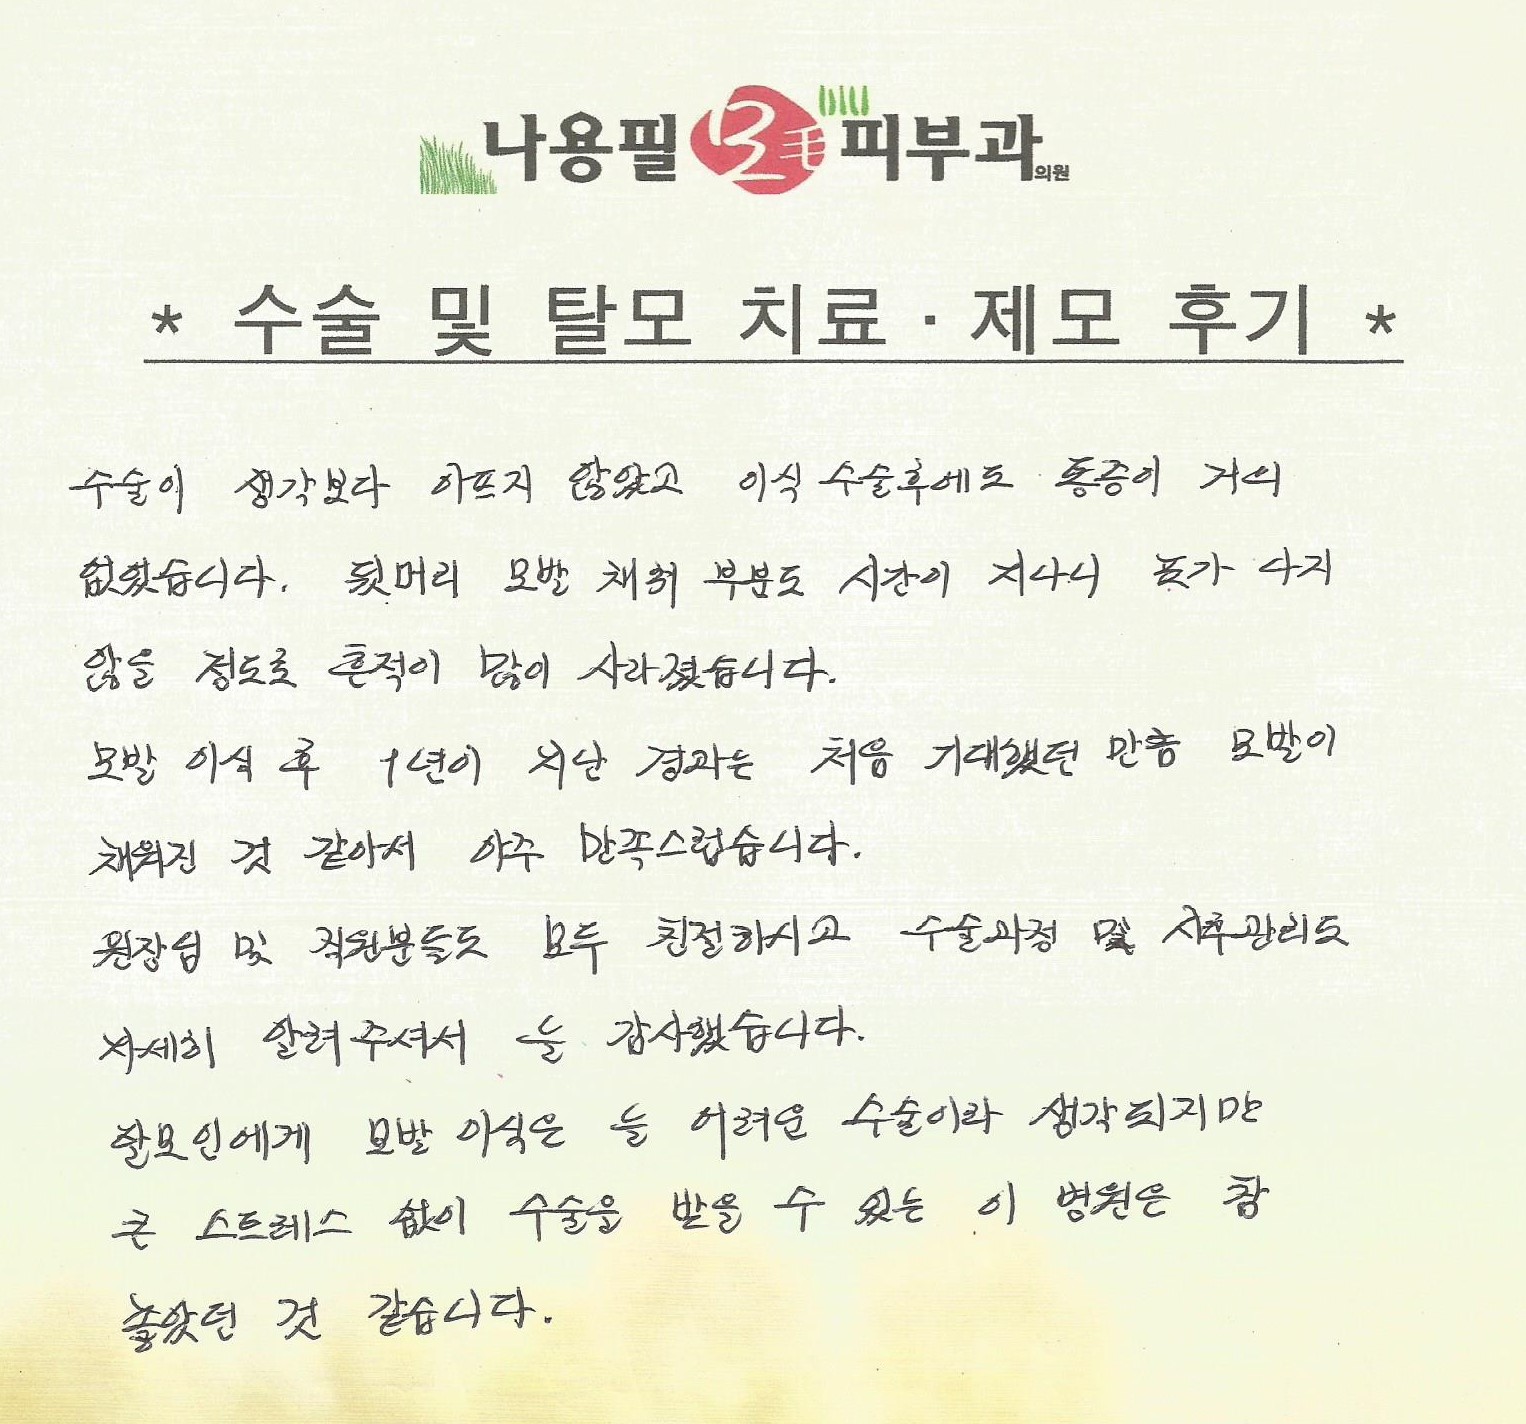 나용필 모毛 피부과의원
* 수술 및 탈모 치료 · 제모 후기 *
수술이 생각보다 아프지 않았고 이식 수술후에도 통증이 거의
없었습니다. 뒷머리 모발 채취 부분도 시간이 지나니 표가 나지
않을 정도로 흔적이 많이 사라졌습니다.
모발 이식 후 1년이 지난 경과는 처음 기대했던 만큼 모발이
채워진 것 같아서 아주 만족스럽습니다.
원장님 및 직원분들도 모두 친절하시고 수술과정 및 사후관리도
자세히 알려주셔서 늘 감사했습니다.
탈모인에게 모발 이식은 늘 어려운 수술이라 생각되지만
큰 스트레스 없이 수술을 받을 수 있는 이 병원은 참
좋았던 것 같습니다.